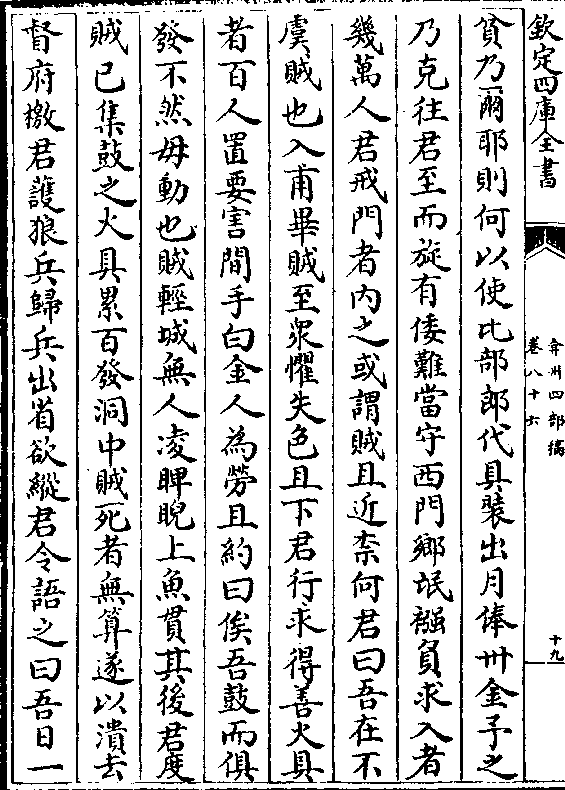 欽定四庫全書
弇州四部稿
卷八十六
十九
貧乃爾耶則何以使比部郎代具裝出月俸卅金予之
乃克往君至而旋有倭難當守西門鄉氓襁負求入者
幾萬人君戒門者內之或謂賊且近柰何君曰吾在不
虞賊也入甫畢賊至衆懼失色且下君行求得善火具
者百人置要害間手白金人為勞且約曰俟吾鼓而俱
發不然毋動也賊輕城無人凌睥睨上魚貫其後君度
賊已集鼓之火具累百發洞中賊死者無算遂以潰去
督府檄君護狼兵歸兵出省欲縱君令語之曰吾日一